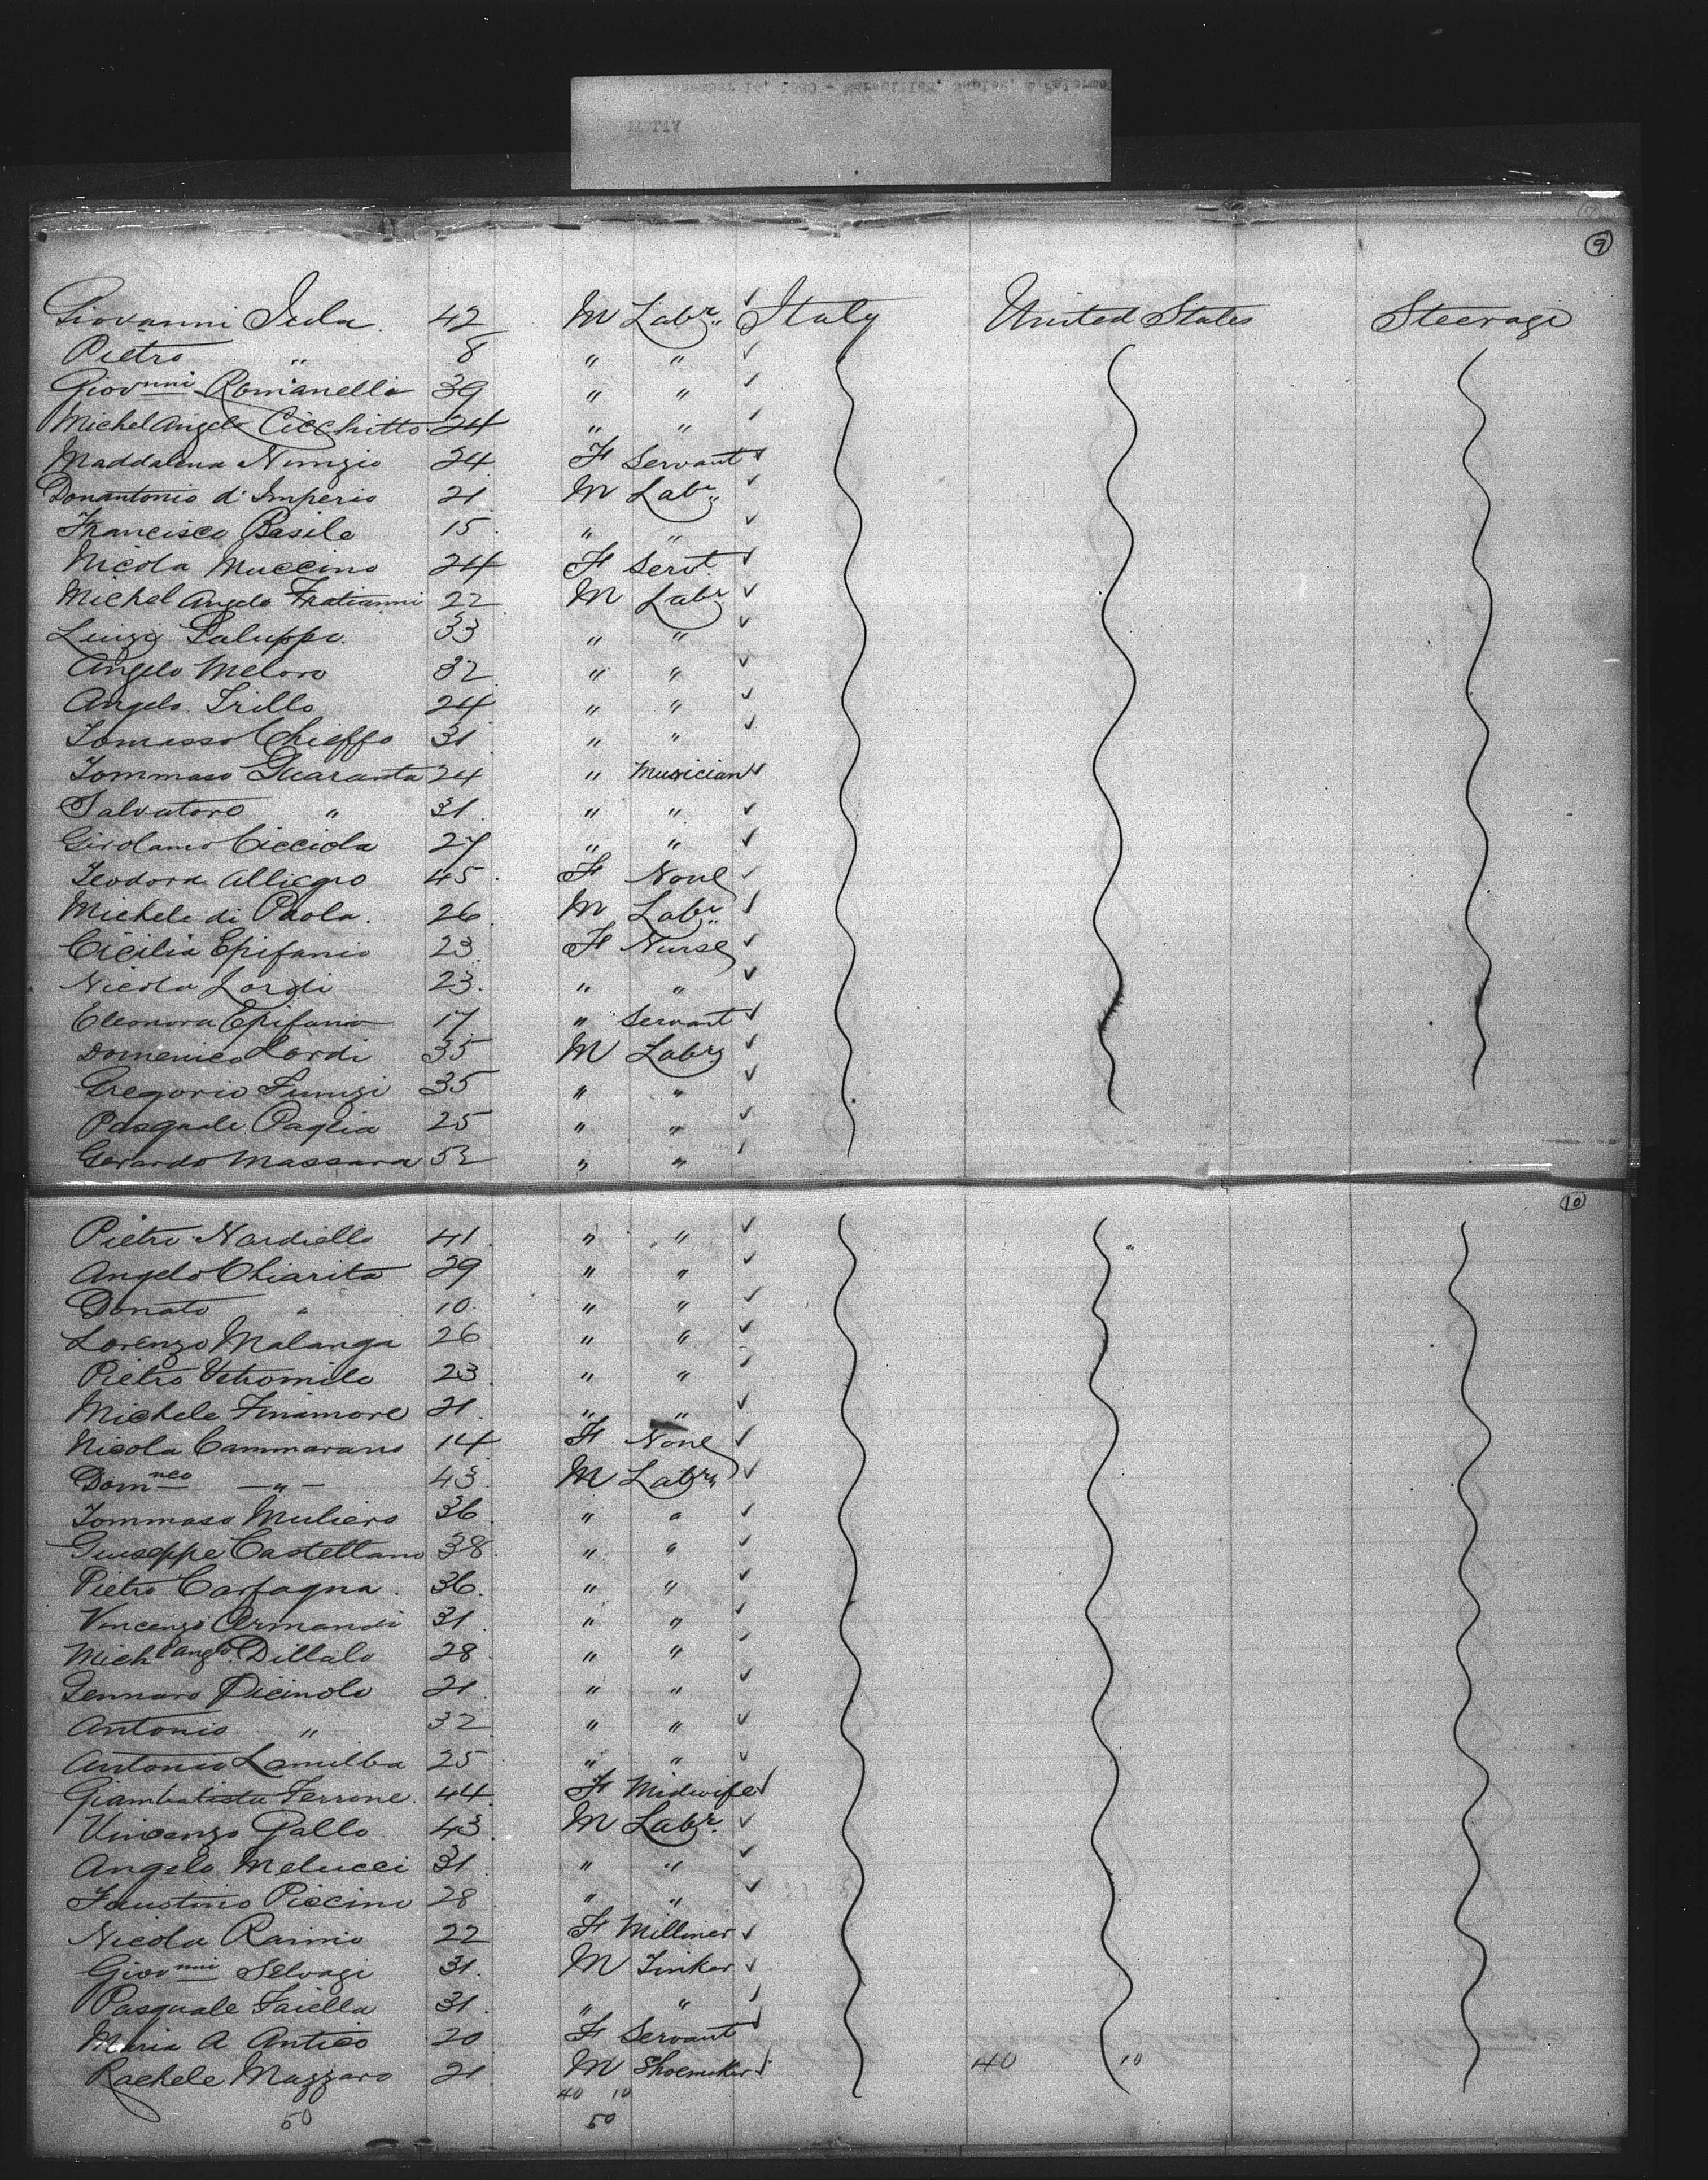 9
Giovanni Isula. 42 M Labr. ✓ Italy United States Steerage
Pietro " 8 " " ✓
Giovnni Romanelli 39 " " ✓
Michel Angelo Cicchitto 24 " " ✓
Maddalena Nunzio 24 F Servant ✓
Donantonio d'Imperio 21 M Labr ✓
Francisco Basile 15 " " ✓
Nicola Muccino 24 F Servt. ✓
Michel Angelo Fratianni 22 M Labr ✓
Luigi Galuppo. 33 " " ✓
Angelo Meloro 32 " " ✓
Angelo Trillo 24 " " ✓
Tomasso Chieffo 31 " " ✓
Tommaso Guaranta 24 " Musician ✓
Salvatore " 31 " " ✓
Girolamo Cicciola 27 " " ✓
Teodora Alliegro 45 F None ✓
Michele di Paola. 26 M Labr ✓
Cicilia Epifanio 23 F Nurse ✓
Nicola Lordi 23. " " ✓
Eleonora Epifanio 17 " Servant ✓
Domenico Lordi 35 M Labr ✓
Gregorio 35 " " ✓
Pasquale Paglia 25 " " ✓
Gerardo Massara 52 " " ✓
10
Pietro Nardiello 41 " " ✓
Angelo Chiarito 29 " " ✓
Donato " 10 " " ✓
Lorenzo Malanga 26 " " ✓
Pietro Vetromilo 23 " " ✓
Michele Finamore 21 " " ✓
Nicola Cammarano 14 F None ✓
Domnco — " — 43 M Labr ✓
Tommaso Muliero 36 " " ✓
Giuseppe Castellano 38 " " ✓
Pietro Carfagna. 36. " " ✓
Vincenzo Armandi 31 " " ✓
Michlango. Dillalo 28 " " ✓
Gennaro Dicindo 21 " " ✓
Antonio " 32 " " ✓
Antonio Lamilba 25 " " ✓
Giambatista Ferrone. 44 F Midwife ✓
Vincenzo Gallo 43 M Labr. ✓
Angelo Melucci 31 " " ✓
Faustino Piccini 28 " " ✓
Nicola Rainio 22 F Milliner ✓
Giovnni Selvagi 31. M Tinker ✓
Pasquale Faiella 31. " " ✓
Maria A Antico 20 F Servant ✓
Rachele Mazzaro 21 M Shoemaker ✓ 40 10
40 10
50 50